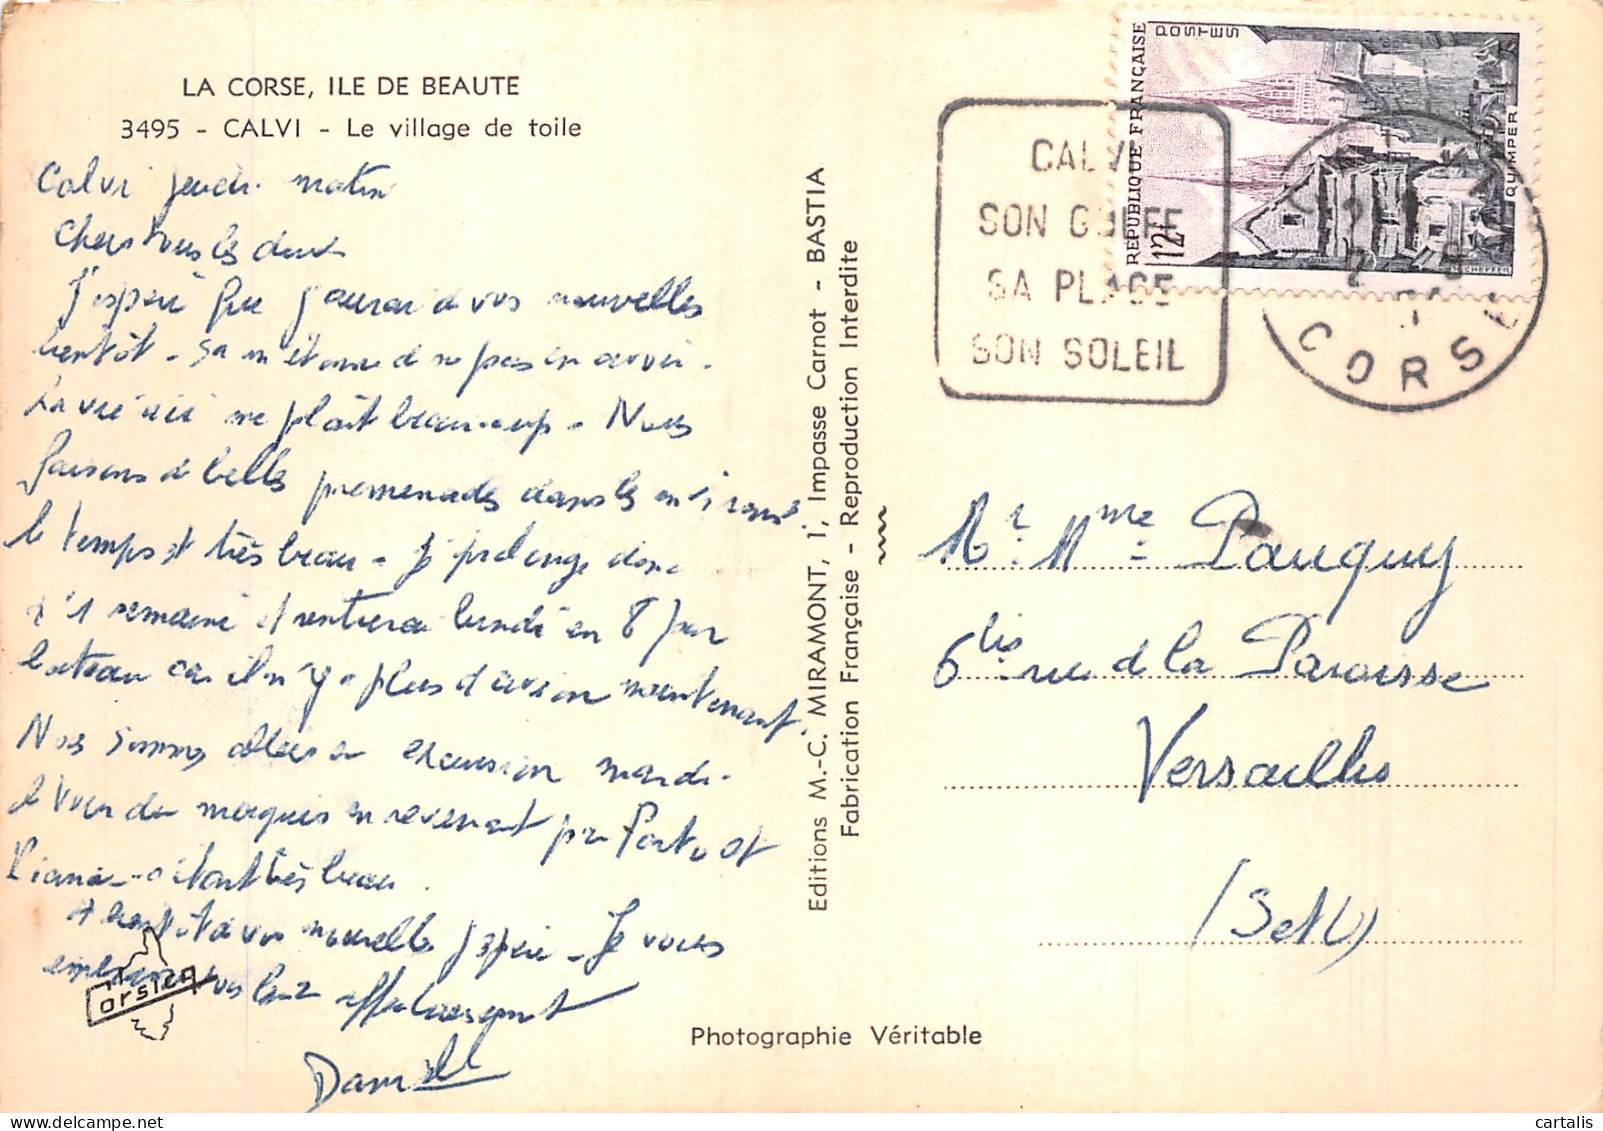 LA CORSE, ILE DE BEAUTE
3495 - CALVI - Le village de toile
Calvi jeudi matin
Chers tous les deux
J'espère que j'aurai de vos nouvelles
bientôt - Sa m'étonne de ne pas en avoir.
La vie ici me plaît beaucoup - Nous
faisons de belles promenades dans les environs
le temps est très beau - Je prolonge donc
d'1 semaine et rentrerai lundi en 8 par
bateau car il n'y a plus d'avion maintenant,
Nous sommes allés en excursion mardi.
en revenant par Porto et
Piana - c'était très beau.
A bientôt de vos nouvelles j'espère - Je vous
embrasse tous deux affectueusement
Corsica
Editions M.-C. MIRAMONT, 1, Impasse Carnot - BASTIA
Fabrication Française - Reproduction Interdite
Photographie Véritable
REPUBLIQUE FRANÇAISE
POSTES
12F
QUIMPER
CHEFFER
CALVI
SON GOLFE
SA PLAGE
SON SOLEIL
CORSE
Mr. Mme Pauquy
6 bis rue de la Paroisse
Versailles
(S et O)
cartalis
delcampe.net